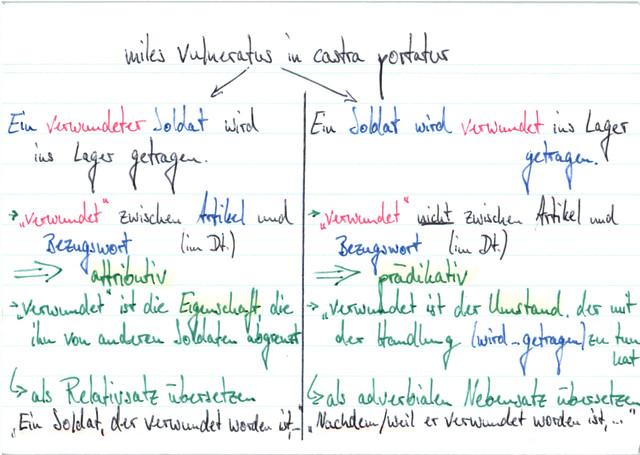 miles vulneratus in castra portatur
Ein verwundeter Soldat wird
ins Lager getragen.
→ „verwundet“ zwischen Artikel und
Bezugswort (im Dt.)
⇒ attributiv
→ „verwundet“ ist die Eigenschaft, die
ihn von anderen Soldaten abgrenzt
↳ als Relativsatz übersetzen
„Ein Soldat, der verwundet worden ist,..."
Ein Soldat wird verwundet ins Lager
getragen.
→ „verwundet“ nicht zwischen Artikel und
Bezugswort (im Dt.)
⇒ prädikativ
→ „verwundet ist der Umstand, der mit
der Handlung (wird ... getragen) zu tun
hat
↳ als adverbialen Nebensatz übersetzen
„Nachdem/weil er verwundet worden ist, ..."